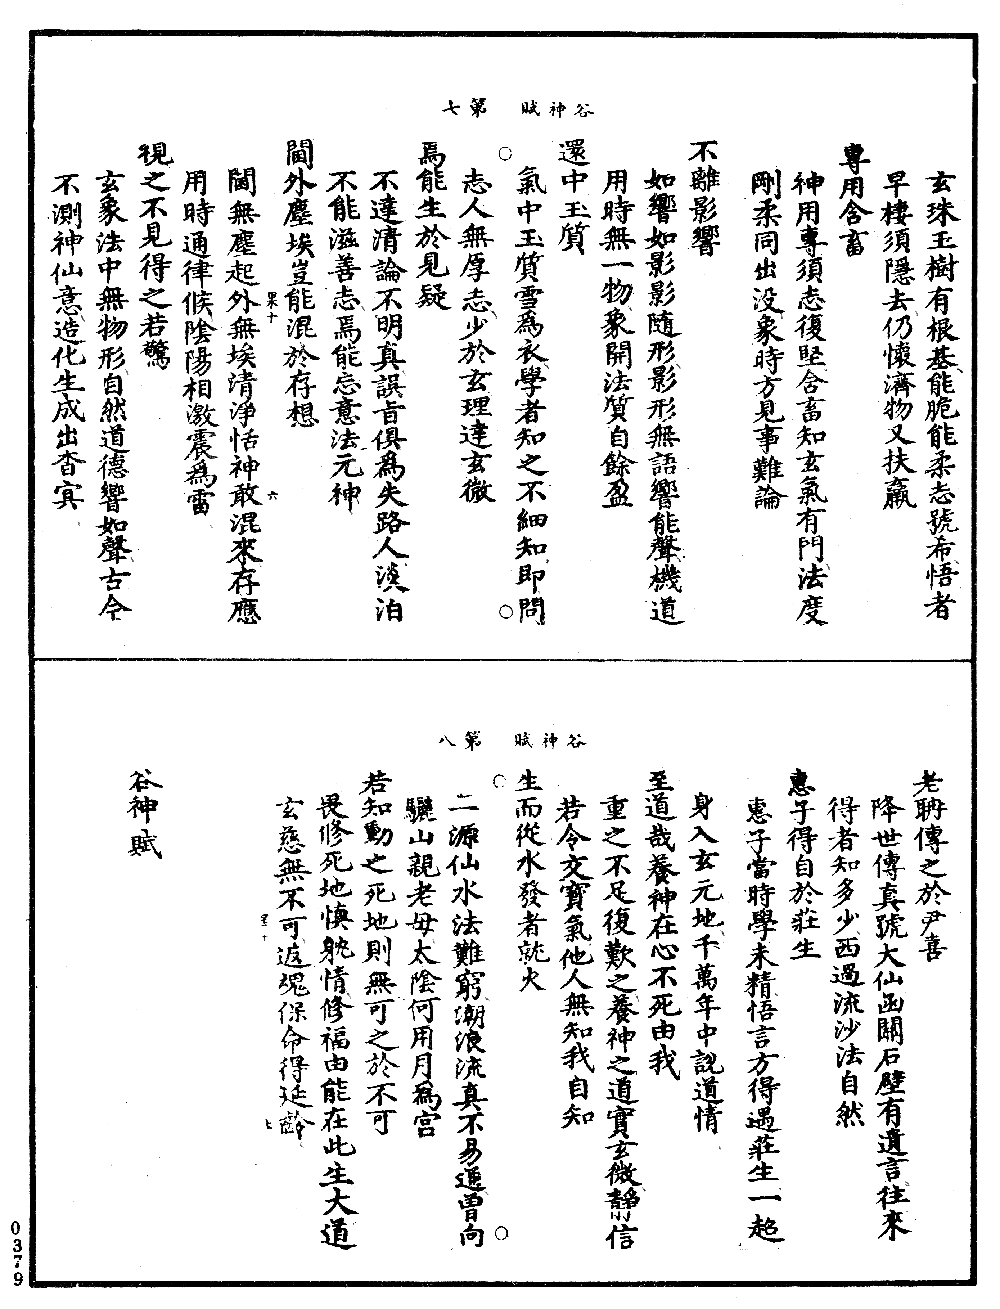 谷神賦　第七
玄珠玉樹有根基能脆能柔志號希悟者
早棲須隱去仍懷濟物又扶羸
專用含畜
神用專須志復堅含畜知玄氣有門法度
剛柔同出没象時方見事難論
不離影響
如響如影影隨形影形無語響能聲機道
用時無一物象開法質自餘盈
還中玉質
氣中玉質雪爲衣學者知之不細知即問
志人無厚志少於玄理達玄微
焉能生於見疑
不達清論不明真誤盲俱爲失路人淡泊
不能滋善志焉能忘意法元神
閫外塵埃豈能混於存想
閫無塵起外無埃清净恬神敢混來存應
用時通律候陰陽相激震爲雷
視之不見得之若驚
玄象法中無物形自然道德響如聲古今
不測神仙意造化生成出杳冥
谷神賦　第八
老聃傳之於尹喜
降世傳真號大仙函關石壁有遺言往來
得者知多少西過流沙法自然
惠子得自於莊生
惠子當時學未精悟言方得遇莊生一超
身入玄元地千萬年中説道情
至道哉養神在心不死由我
重之不足復歎之養神之道實玄微靜信
若令交寶氣他人無知我自知
生而從水發者就火
二源仙水法難窮潮浪流真不易通曾向
驪山親老母太陰何用月爲宫
若知動之死地則無可之於不可
畏修死地慎躭情修福由能在此生大道
玄慈無不可返魂保命得延齡
谷神賦
0379